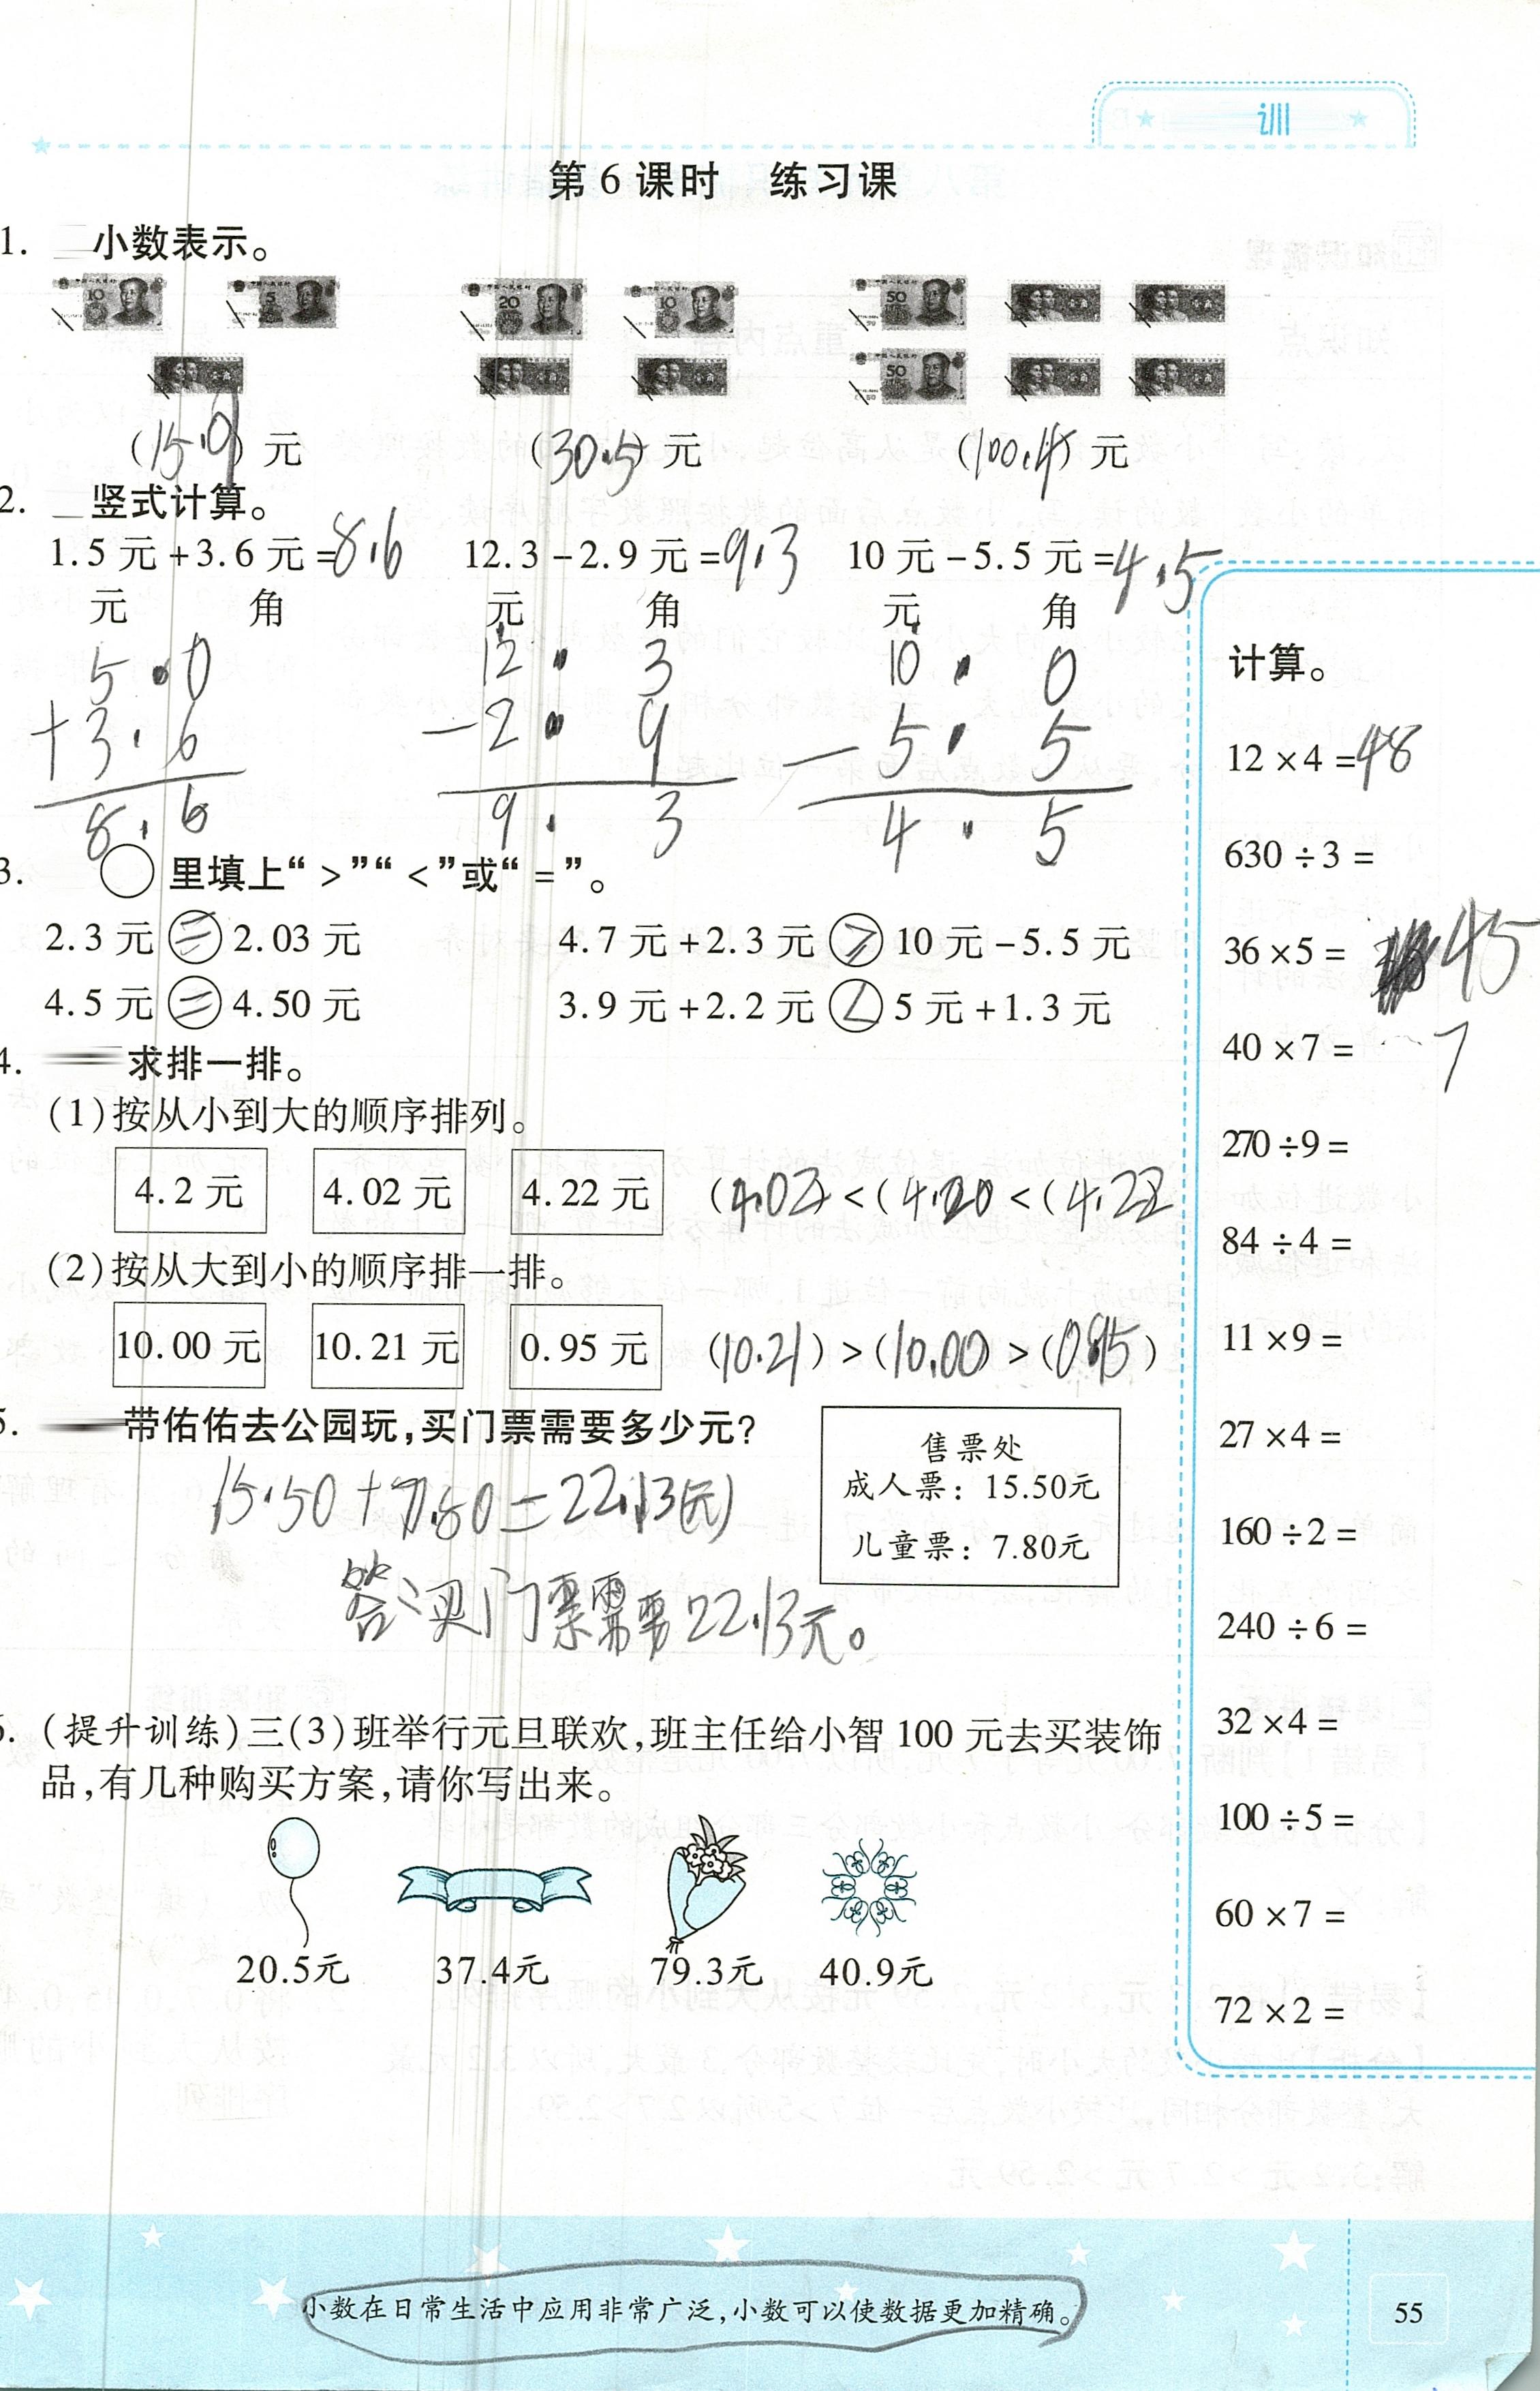 训
第 6 课时 练习课
1. 小数表示。
(15.9)元 (30.5)元 (100.4)元
2. 竖式计算。
1.5 元 + 3.6 元 = 8.6 12.3 - 2.9 元 = 9.3 10 元 - 5.5 元 = 4.5
元 角 元 角 元 角
5.0 12.3 10.0
+3.6 -2.9 -5.5
8.6 9.3 4.5
3. ○里填上“>”“<”或“=”。
2.3 元 = 2.03 元 4.7 元 + 2.3 元 > 10 元 - 5.5 元
4.5 元 = 4.50 元 3.9 元 + 2.2 元 < 5 元 + 1.3 元
4. 求排一排。
(1)按从小到大的顺序排列。
4.2 元 4.02 元 4.22 元 (4.02) < (4.20 < (4.22
(2)按从大到小的顺序排一排。
10.00 元 10.21 元 0.95 元 (10.21) > (10.00) > (0.95)
5. 带佑佑去公园玩,买门票需要多少元?
15.50 + 7.80 = 22.13(元)
答:买门票需要22.13元。
售票处
成人票: 15.50元
儿童票: 7.80元
6. (提升训练)三(3)班举行元旦联欢,班主任给小智 100 元去买装饰
品,有几种购买方案,请你写出来。
20.5元 37.4元 79.3元 40.9元
计算。
12 × 4 = 48
630 ÷ 3 =
36 × 5 = 45
40 × 7 = 7
270 ÷ 9 =
84 ÷ 4 =
11 × 9 =
27 × 4 =
160 ÷ 2 =
240 ÷ 6 =
32 × 4 =
100 ÷ 5 =
60 × 7 =
72 × 2 =
小数在日常生活中应用非常广泛,小数可以使数据更加精确。
55